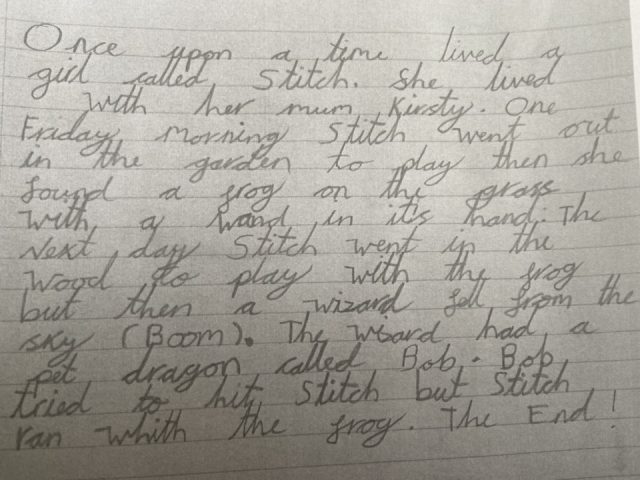 Once upon a time lived a
girl called Stitch. She lived
with her mum Kirsty. One
Friday morning Stitch went out
in the garden to play then she
found a frog on the grass
with a wand in it's hand. The
Next day Stitch went in the
wood to play with the frog
but then a wizard fell from the
sky (Boom). The wisard had a
pet dragon called Bob. Bob
tried to hit Stitch but Stitch
ran whith the frog. The End!